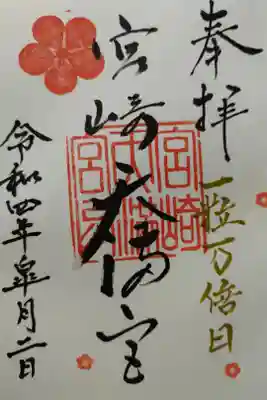 奉拝
一粒万倍日
宮崎天満宮
宮崎
令和四年皐月二日